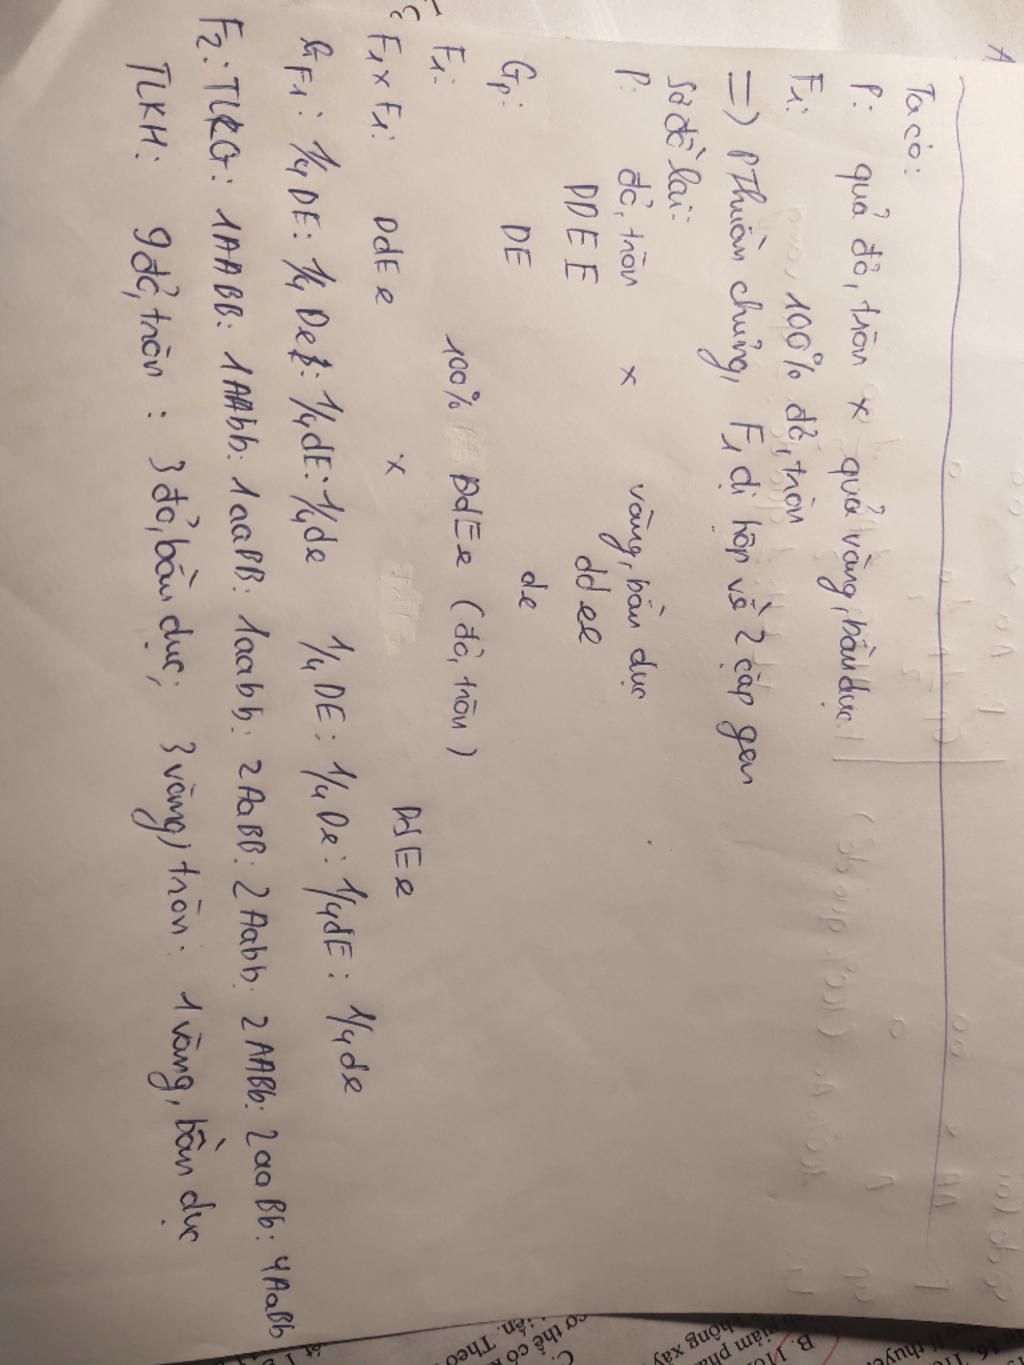 Ta có:
P: quả đỏ, tròn x quả vàng, bầu dục
F1: 100% đỏ, tròn
=) P thuần chủng, F1 dị hợp về 2 cặp gen
Sơ đồ lai:
P: đỏ, tròn x vàng, bầu dục
DDEE ddee
Gp: DE de
F1: 100% DdEe (đỏ, tròn)
F1 x F1: DdEe x DdEe
GF1: 1/4 DE: 1/4 De: 1/4 dE: 1/4 de 1/4 DE: 1/4 De: 1/4 dE: 1/4 de
F2: TLKG: 1AABB: 1AAbb: 1aaBB: 1aabb: 2AaBB: 2Aabb: 2AABb: 2aaBb: 4AaBb
TLKH: 9 đỏ, tròn : 3 đỏ, bầu dục; 3 vàng, tròn: 1 vàng, bầu dục